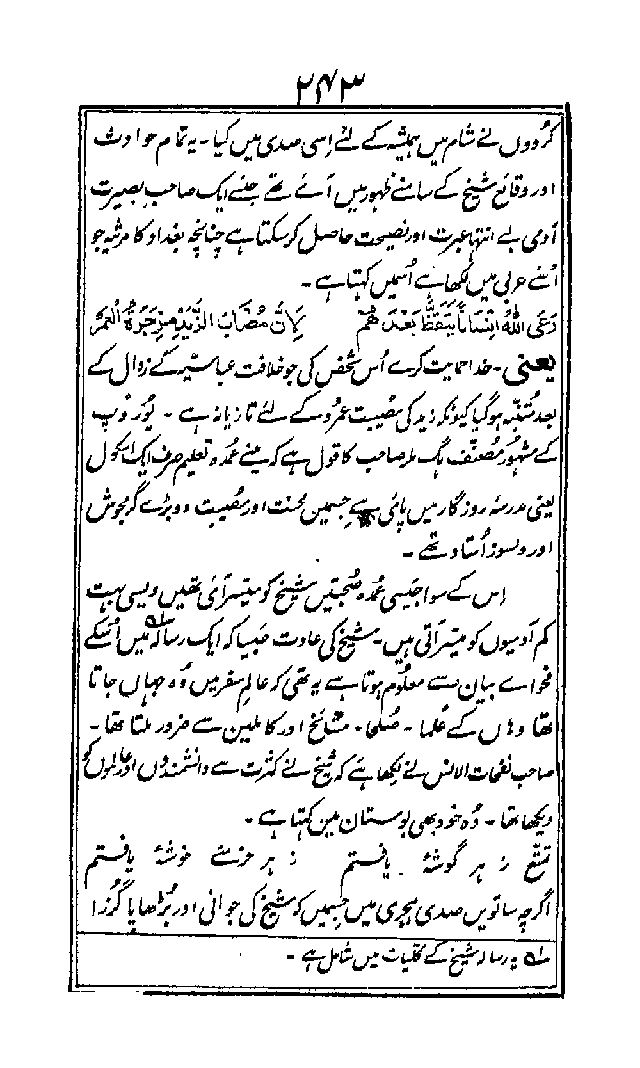 ۲۴۳
کُردوں نے شام میں ہمیشہ کے لئے اِسی صدی میں کیا ۔ یہ تمام حوادث
اور وقائع شیخ کے سامنے ظہور میں آئے تھے جنسے ایک صاحبِ بصیرت
آدمی بے انتہا عبرت اور نصیحت حاصل کر سکتا ہے چنانچہ بغداد کا مرثیہ جو
اُسنے عربی میں لکھا ہے اُسمیں کہتا ہے ۔
رَعَی اللّٰہُ اِنسَاناً تَیَقَّظَ بَعدَ ھُم لِاَنَّ مُصَابَ الزَّیدِ مِزجَرَۃُ العَمرِ
یعنی ۔ خدا حمایت کرے اُس شخص کی جو خلافت عباسیہ کے زوال کے
بعد مُتنبّہ ہو گیا کیونکہ زید کی مصیبت عمرو کے لئے تازیانہ ہے ۔ یُورُوپ
کے مشہُور مُصنّف ہگ ملر صاحب کا قول ہے کہ مینے عُمدہ تعلیم صرف ایک اسکول
یعنی مدرسۂ روزگار میں پائی ہے جسمیں محنت اور مُصیبت دو بڑے گرمجوش
اور دلسوز اُستاد تھے ۔
اِس کے سوا جیسی عُمدہ صُحبتیں شیخ کو میسّر آئی تھیں ویسی بہت
کم آدمیوں کو میسّر آتی ہیں ۔ شیخ کی عادت جیسا کہ ایک رسالہ ۱؎ میں اُسکے
فحواے بیان سے معلُوم ہوتا ہے یہ تھی کہ عالمِ سفر میں وُہ جہاں جاتا
تھا وہاں کے عُلما ۔ صُلحا ۔ مشائخ اور کاملین سے ضرور ملتا تھا ۔
صاحب نفحات الانس نے لکھا ہے کہ شیخ نے کثرت سے دانشمندوں اور عالموں کو
دیکھا تھا ۔ وُہ خود بھی بوستان میں کہتا ہے ۔
تمتّع ز ہر گوشۂ یافتم ز ہر خرمنے خوشۂ یافتم
اگرچہ ساتویں صدی ہجری میں جسمیں کہ شیخ کی جوانی اور بُڑھاپا گزرا
۱؎ یہ رسالہ شیخ کے کُلّیات میں شامل ہے ۔